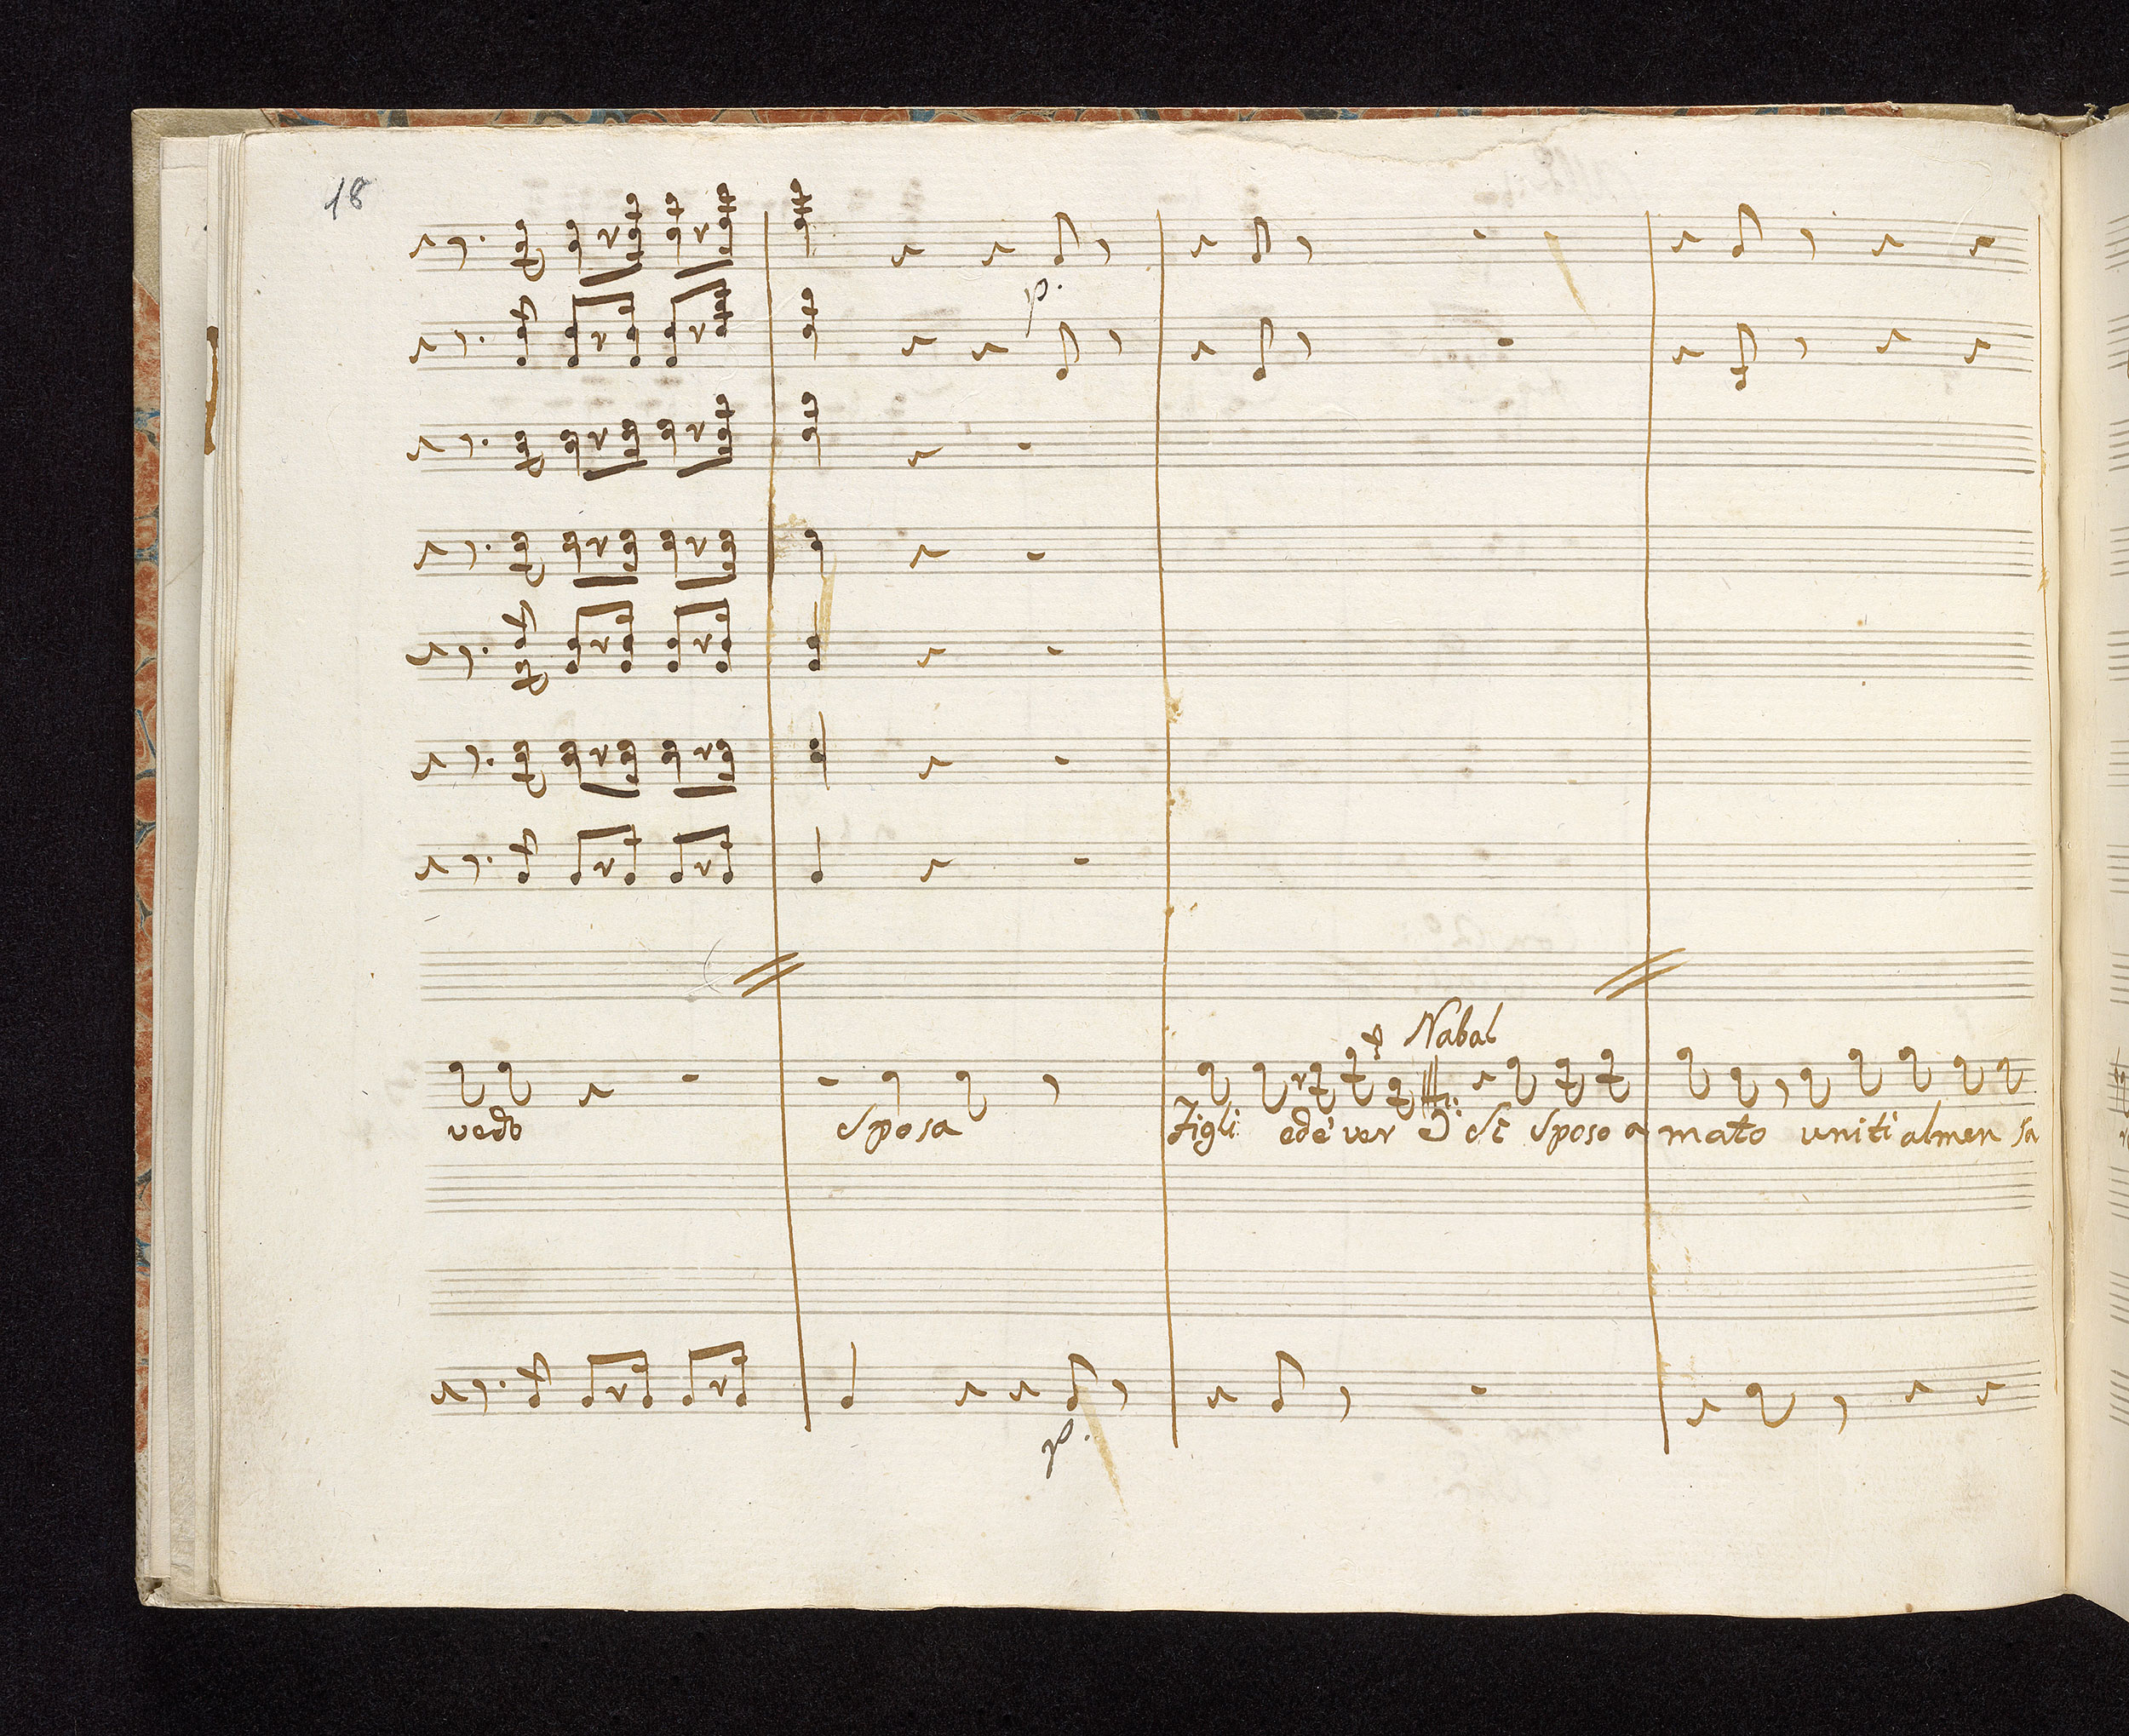 18
p.
Nabal
vedo Sposa Figli ed è ver Si Sposo a mato uniti almen sa
p.